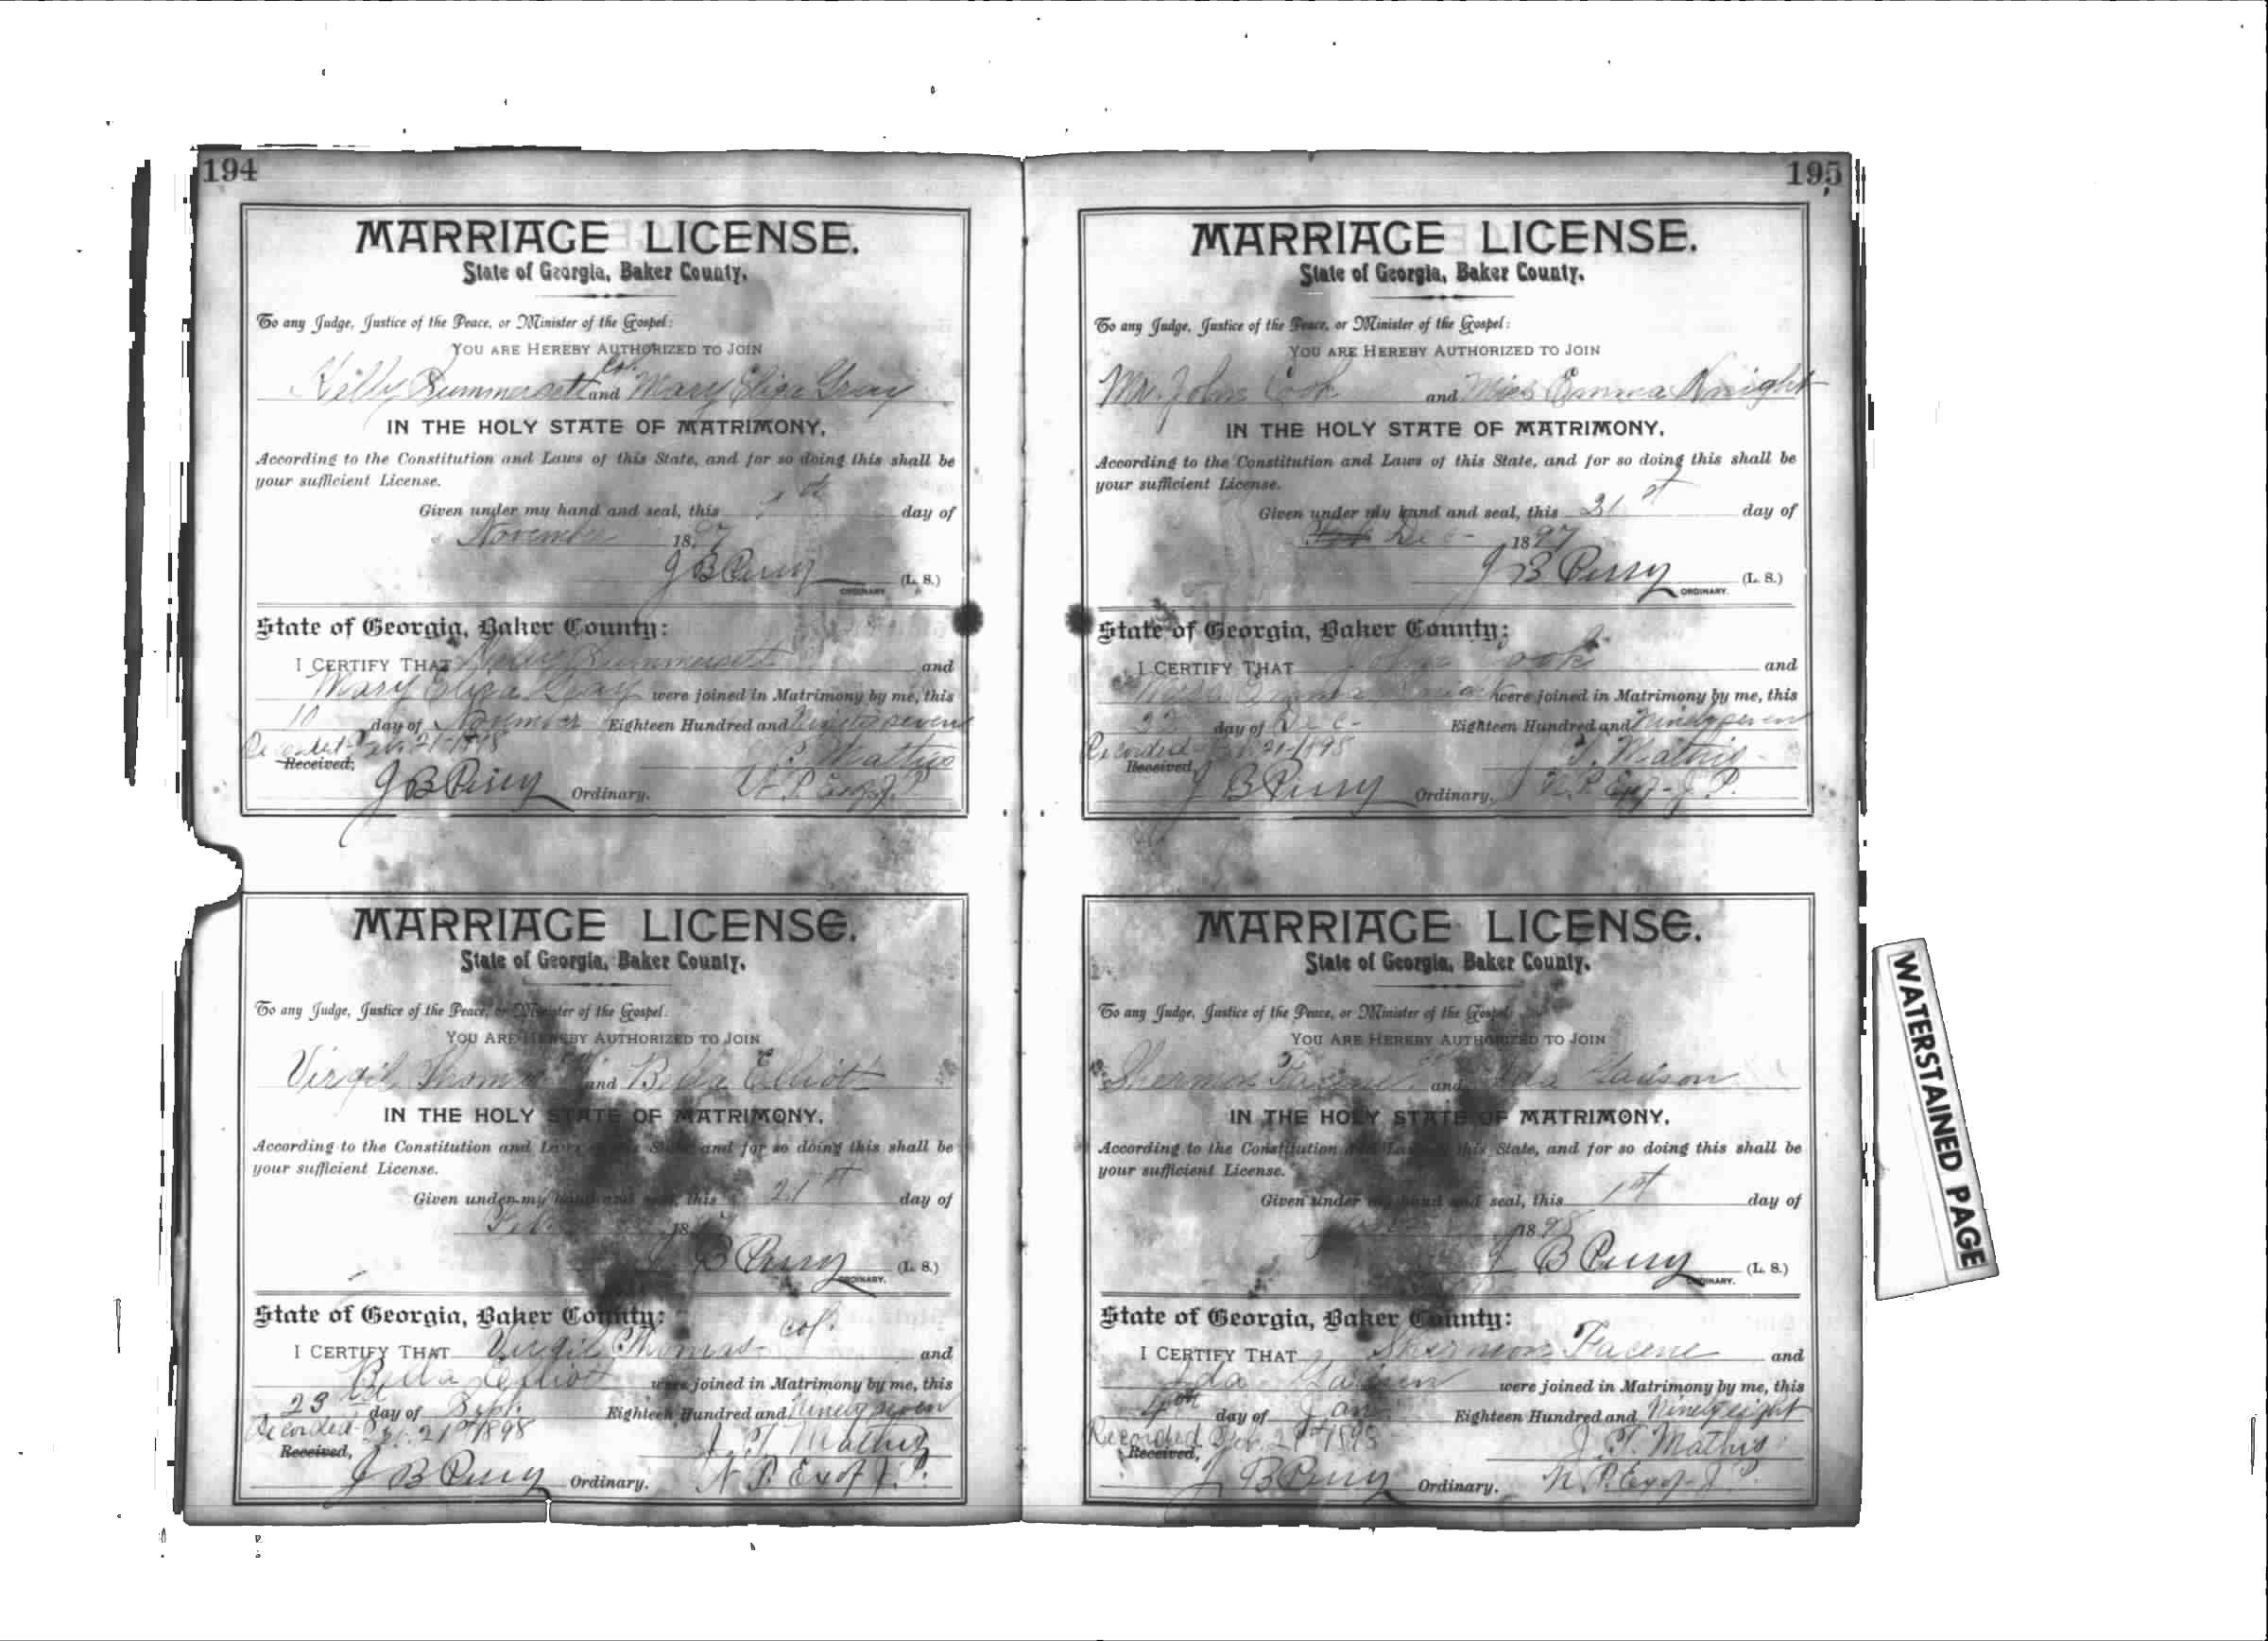 194
MARRIAGE LICENSE.
State of Georgia, Baker County.
To any Judge, Justice of the Peace, or Minister of the Gospel:
YOU ARE HEREBY AUTHORIZED TO JOIN
Col.
Kelly Summersett and Mary Eliza Gray
IN THE HOLY STATE OF MATRIMONY,
According to the Constitution and Laws of this State, and for so doing this shall be
your sufficient License.
Given under my hand and seal, this day of
November 1897
J B Perry (L. S.)
ORDINARY.
State of Georgia, Baker County:
I CERTIFY THAT Summersett and
Mary Eliza Gray were joined in Matrimony by me, this
10 day of November Eighteen Hundred and Ninety seven
Recorded 21-1898
Mathis
Received,
J B Perry Ordinary.
MARRIAGE LICENSE.
State of Georgia, Baker County.
To any Judge, Justice of the Peace, or Minister of the Gospel:
YOU ARE HEREBY AUTHORIZED TO JOIN
Virgil Thomas and Bella Elliot
IN THE HOLY STATE OF MATRIMONY,
According to the Constitution and Laws State, and for so doing this shall be
your sufficient License.
Given under my hand and seal, this 21st day of
18
J B Perry (L. S.)
ORDINARY.
State of Georgia, Baker County:
col.
I CERTIFY THAT Virgil Thomas and
Bella Elliot were joined in Matrimony by me, this
23 day of Sept. Eighteen Hundred and Ninety seven
Recorded 21st 1898
J. T. Mathis
Received,
J B Perry Ordinary. N. P. Exof J. P.
195
MARRIAGE LICENSE.
State of Georgia, Baker County.
To any Judge, Justice of the Peace, or Minister of the Gospel:
YOU ARE HEREBY AUTHORIZED TO JOIN
Mr. John Cook and Miss Emma Knight
IN THE HOLY STATE OF MATRIMONY,
According to the Constitution and Laws of this State, and for so doing this shall be
your sufficient License.
Given under my hand and seal, this 21st day of
Dec- 1897
J B Perry (L. S.)
ORDINARY.
State of Georgia, Baker County:
I CERTIFY THAT John Cook and
Miss Emma Knight were joined in Matrimony by me, this
22 day of Dec- Eighteen Hundred and Ninety seven
Recorded 21-1898
J. T. Mathis
Received,
J B Perry Ordinary. N. P. Exof- J. P.
MARRIAGE LICENSE.
State of Georgia, Baker County.
To any Judge, Justice of the Peace, or Minister of the Gospel:
YOU ARE HEREBY AUTHORIZED TO JOIN
Sherman and Ida
IN THE HOLY STATE OF MATRIMONY,
According to the Constitution and Laws of this State, and for so doing this shall be
your sufficient License.
Given under my hand and seal, this 1st day of
1898
J B Perry (L. S.)
ORDINARY.
State of Georgia, Baker County:
I CERTIFY THAT Sherman and
Ida were joined in Matrimony by me, this
day of Jan Eighteen Hundred and Ninety eight
Recorded 21st 1898
J. T. Mathis
Received,
J B Perry Ordinary. N. P. Exof- J. P.
WATERSTAINED PAGE